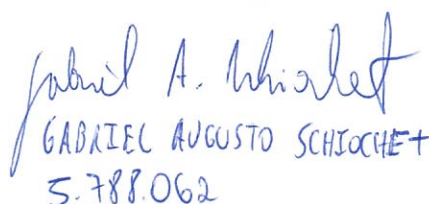 Gabriel A. Schiochet
GABRIEL AUGUSTO SCHIOCHET
5.788.062